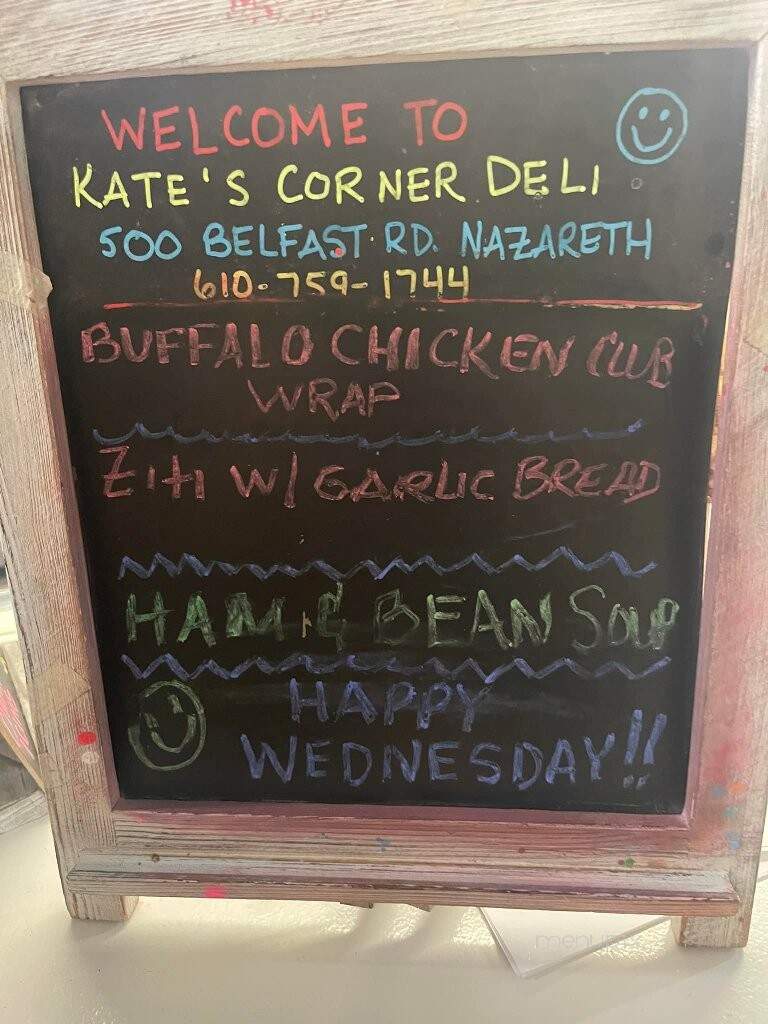 WELCOME TO
KATE'S CORNER DELI
500 BELFAST RD. NAZARETH
610-759-1744
BUFFALO CHICKEN CLUB
WRAP
Ziti W/ GARLIC BREAD
HAM & BEAN SOUP
HAPPY
WEDNESDAY!!